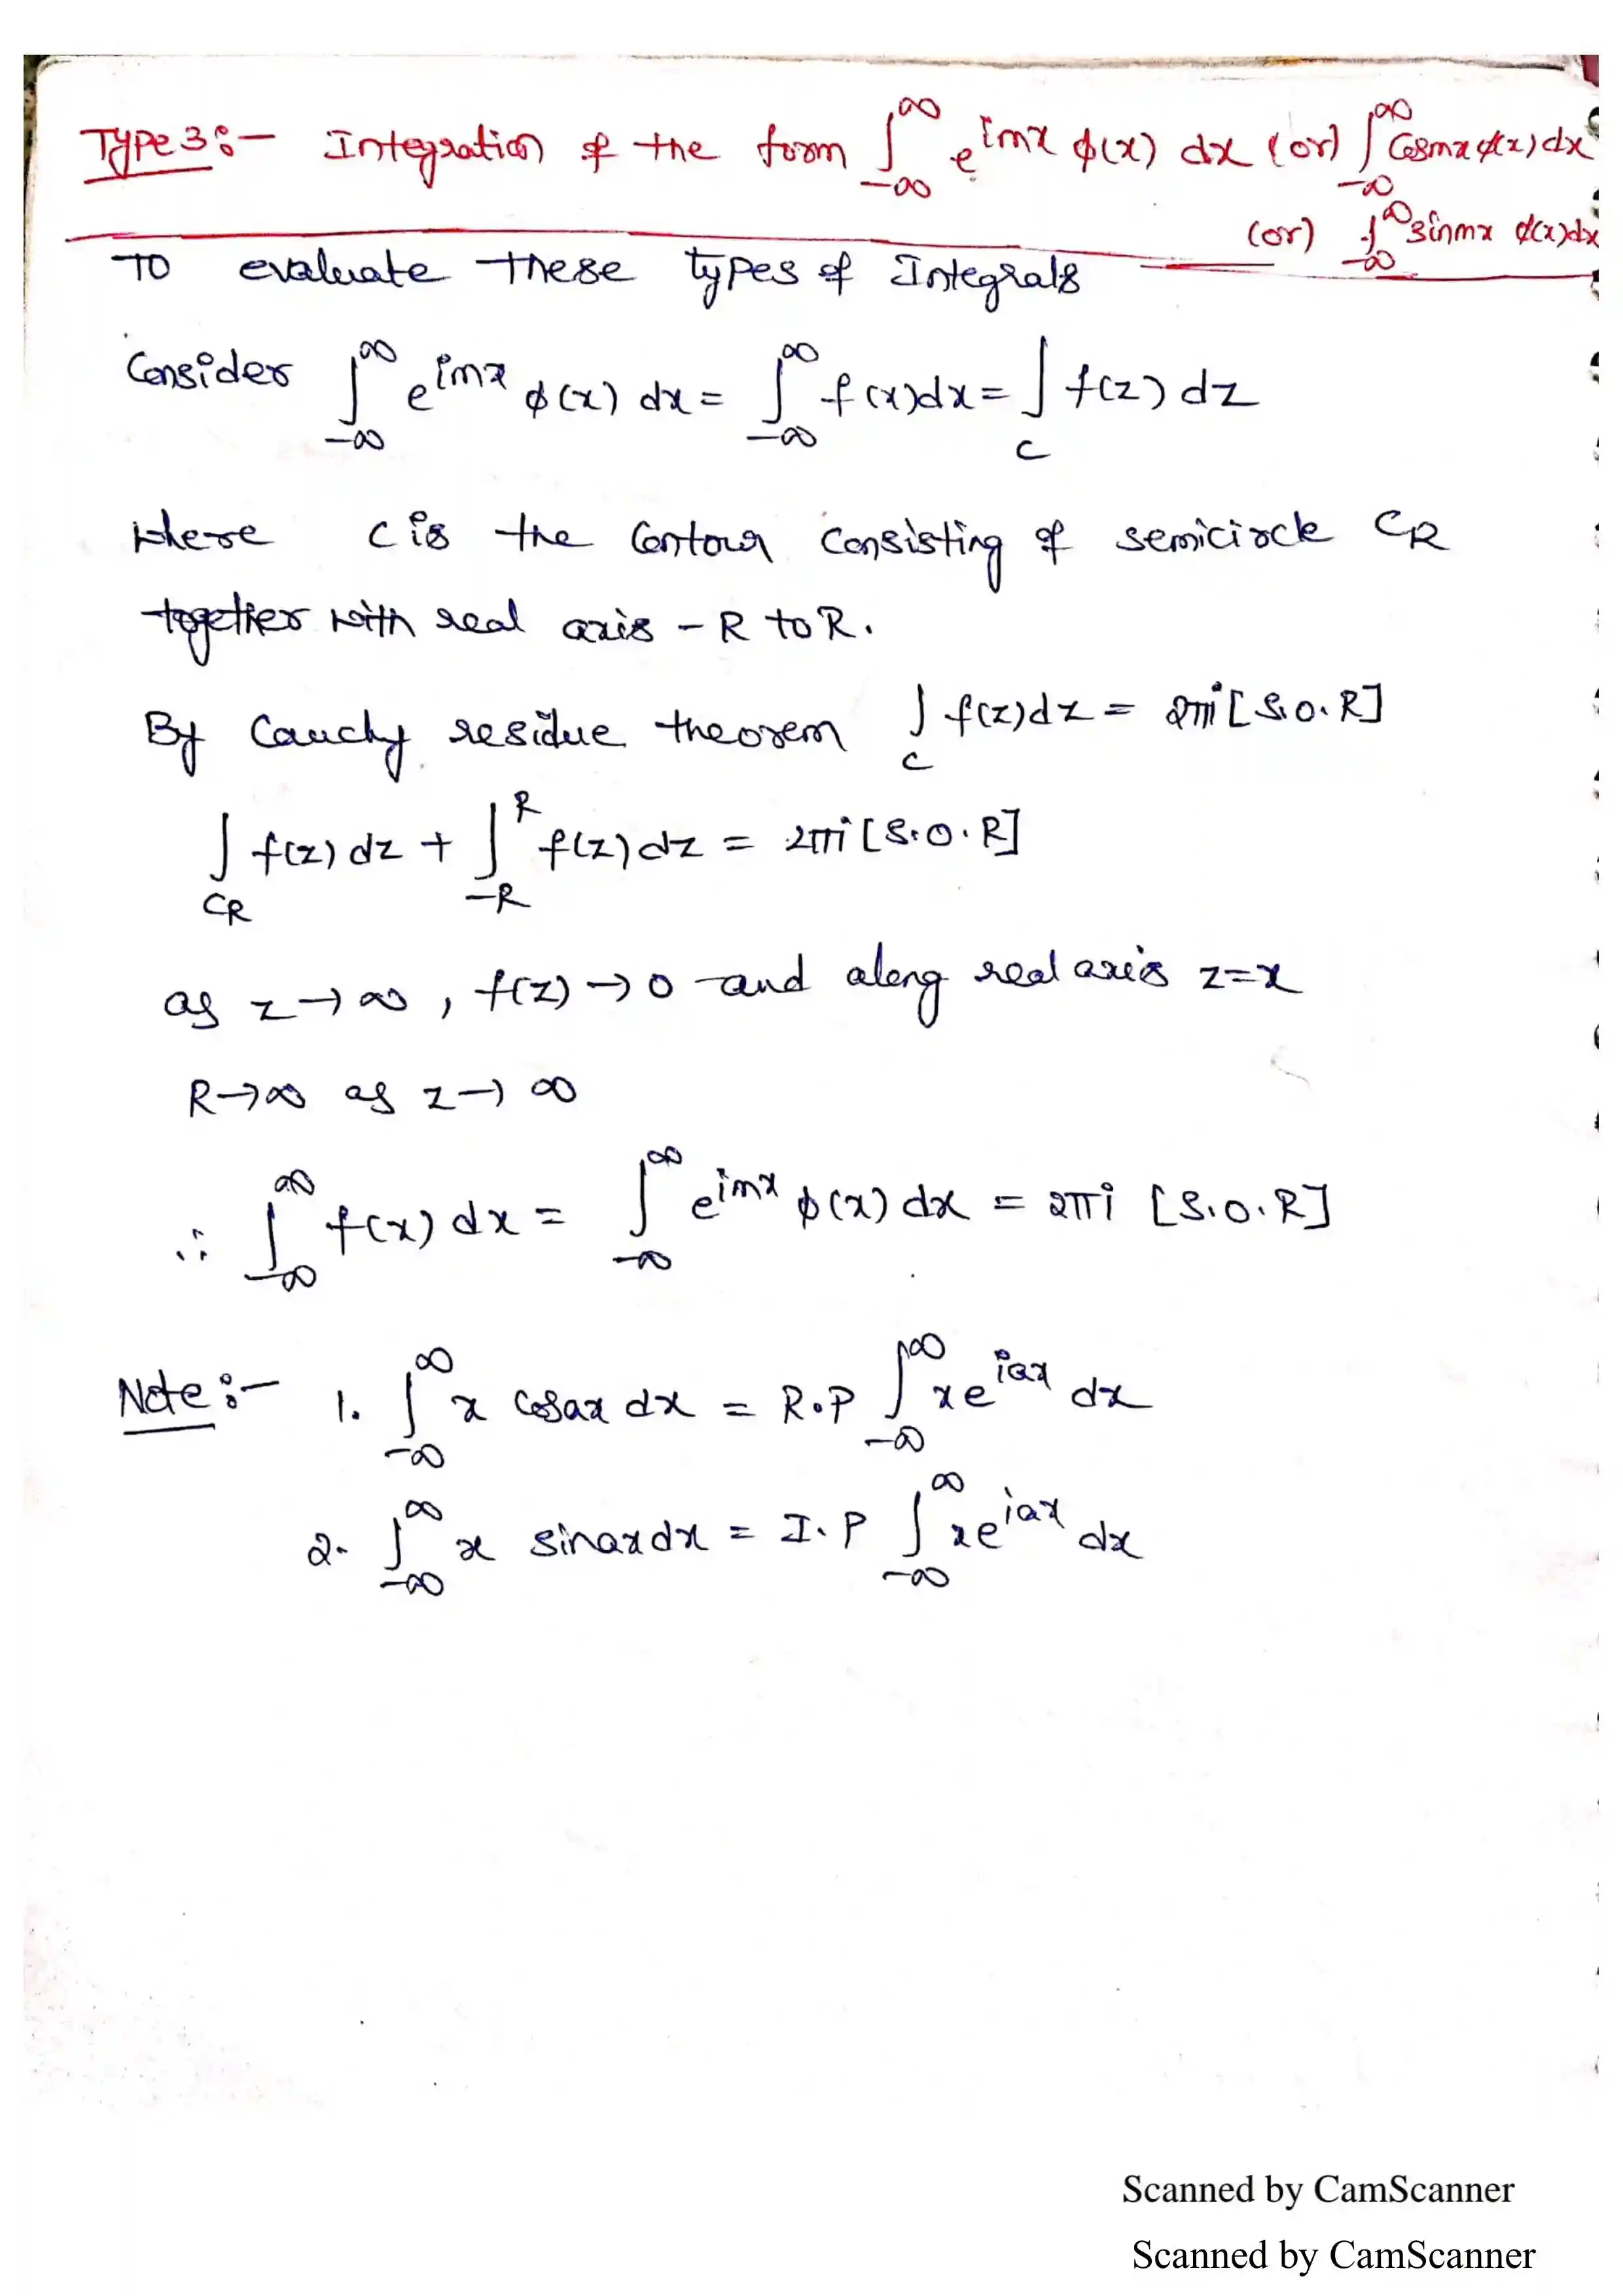 Type 3:- Integration of the form ∫_{-∞}^{∞} e^{imx} ϕ(x) dx (or) ∫_{-∞}^{∞} Cosmx ϕ(x) dx
(or) ∫_{-∞}^{∞} sinmx ϕ(x) dx
To evaluate these types of Integrals
Consider ∫_{-∞}^{∞} e^{imx} ϕ(x) dx = ∫_{-∞}^{∞} f(x)dx = ∫_C f(z) dz
Where C is the Contour Consisting of semicircle C_R
together with real axis -R to R.
By Cauchy residue theorem ∫_C f(z)dz = 2πi [S.O.R]
∫_{C_R} f(z) dz + ∫_{-R}^{R} f(z) dz = 2πi [S.O.R]
as z → ∞, f(z) → 0 and along real axis z=x
R→∞ as z→ ∞
∴ ∫_{-∞}^{∞} f(x) dx = ∫_{-∞}^{∞} e^{imx} ϕ(x) dx = 2πi [S.O.R]
Note :- 1. ∫_{-∞}^{∞} x cosax dx = R.P ∫_{-∞}^{∞} x e^{iax} dx
2. ∫_{-∞}^{∞} x sinax dx = I.P ∫_{-∞}^{∞} x e^{iax} dx
Scanned by CamScanner
Scanned by CamScanner